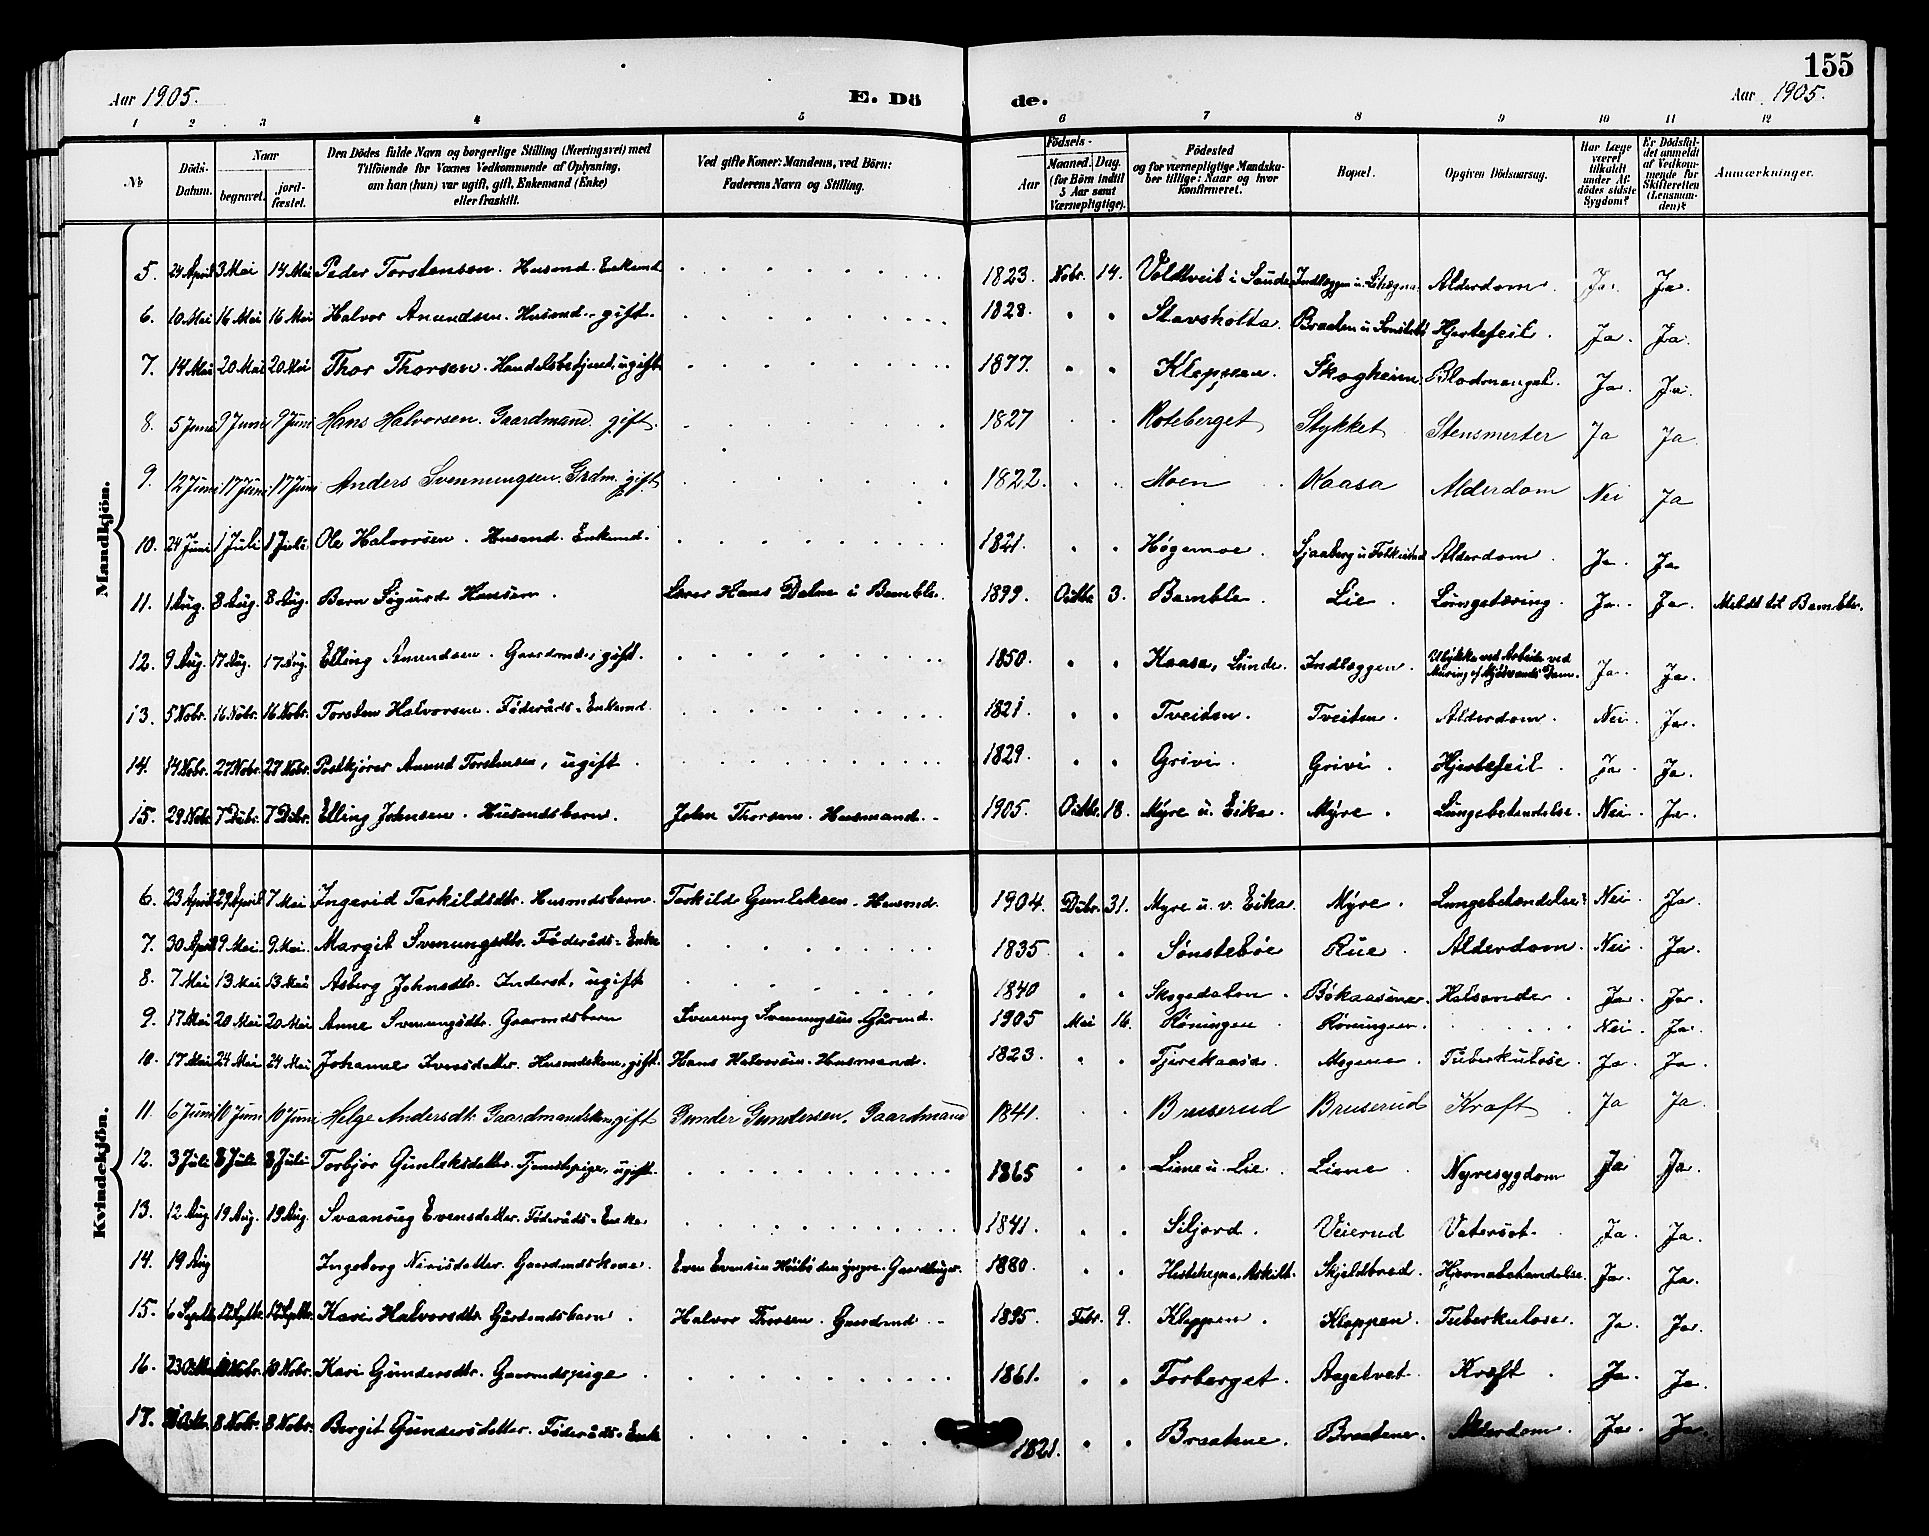 155
Aar 1905. E. Dö de. Aar 1905.
1 2 3 4 5 6 7 8 9 10 11 12
№ Döds-Datum. Naar begravet. jordfæstet. Den Dödes fulde Navn og borgerlige Stilling (Næringsvei) med Tilföiende for Voxnes Vedkommende af Oplysning, om han (hun) var ugift, gift, Enkemand (Enke) eller fraskilt. Ved gifte Koner: Mandens, ved Börn: Faderens Navn og Stilling. Födsels- Aar Maaned. Dag. (for Börn indtil 5 Aar samt Værnepligtige). Födested og for værnepligtige Mandskaber tillige: Naar og hvor Konfirmeret. Bopæl. Opgiven Dödsaarsag. Har Læge været tilkaldt under Afdödes sidste Sygdom? Er Dödsfaldet anmeldt af Vedkommende for Skifteretten (Lensmanden)? Anmærkninger.
Mandkjön.
5. 24 April 3 Mai 14 Mai Peder Torstensen. Husmd. Enkemd 1823. Nobr. 14. Voldtveit i Sauda Indlæggen Alderdom. Ja. Ja.
6. 10 Mai 16 Mai 16 Mai Halvor Amundsen. Husmd. gift. 1828. Stavsholta. Braaten u Hjertefeil. Ja. Ja.
7. 14 Mai 20 Mai 20 Mai Thor Thorsen. Handelsbetjent, ugift 1877. Kleppen. Skogheim. Blodmangel. Ja. Ja.
8. 5 Juni 9 Juni 9 Juni Hans Halvorsen. Gaardmand. gift. 1827 Roteberget Stykket Stensmerter Ja Ja
9. 12 Juni 17 Juni 17 Juni Anders Svenningsen. Grdm. gift 1822. Moen Kaasa Alderdom Nei Ja
10. 24 Juni 1 Juli 1 Juli Ole Halvorsen. Husmd. Enkemd. 1821. Høgemoe. Sjaaberg u Alderdom. Ja. Ja
11. 1 Aug. 8 Aug. 8 Aug. Bern Sigurd Hansen. Lærer Hans Dalene i Bamble. 1899. Octbr 3. Bamble. Lie. Lungetæring. Ja. Ja. Meldt til Bamble.
12. 9 Aug. 17 Aug. 17 Aug. Elling Amundsen. Gaardmd., gift. 1850. Kaasa, Lunde. Indlæggen. Ulykke ved Arbeide ved Muring af Dam. Ja. Ja.
13. 5 Nobr. 16 Nobr. 16 Nobr. Torsten Halvorsen. Föderåds-Enkemd. 1821. Tveiten. Tveiten. Alderdom. Nei. Ja.
14. 14 Nobr. 27 Nobr. 27 Nobr. Postkjører Amund Torstensen, ugift. 1829. Grivi. Grivi. Hjertefeil. Ja. Ja.
15. 29 Nobr. 7 Dcbr. 7 Dcbr. Elling Johnsen. Husmdsbarn. John Thorsen. Husmand. 1905. Octbr. 18. Myre u. Eika. Myre. Lungebetændelse. Nei. Ja.
Kvindekjön.
6. 23 April 29 April 7 Mai Ingerid Tarkildsdtr. Husmdsbarn. Tarkild Gunleksen. Husmd. 1904. Dcbr. 31. Myre u. v. Eika. Myre. Lungebetændelse. Nei. Ja.
7. 30 April 9 Mai. 9 Mai. Margit Svenungsdtr. Föderåds-Enke 1835. Sønstebøe Rue. Alderdom. Nei. Ja.
8. 7 Mai 13 Mai 13 Mai Asberg Johnsdtr. Inderst, ugift 1840 Skogedalen. Bökaasene. Halsonde. Ja. Ja.
9. 17 Mai 20 Mai 20 Mai Anne Svenungsdtr. Gaarmdsbarn Svenung Svenungsen Gårmd. 1905 Mai 16. Röningen. Röningen. Nei. Ja.
10. 17 Mai 24 Mai 24 Mai Johanne Iversdatter. Husmdskone, gift. Hans Halvorsen. Husmand. 1823. Tjerekaasa. Tuberkulose. Ja. Ja.
11. 6 Juni 10 Juni 10 Juni Helge Andersdtr. Gaardmandskone, gift Gunder Gundersen. Gaardmand 1841. Bruserud Bruserud Kræft. Ja Ja.
12. 3 Juli 8 Juli 8 Juli Torbjør Gunleksdatter. Tjenestepige, ugift. 1865 Liene u. Lie. Liene. Nyresygdom Ja Ja.
13. 12 Aug 19 Aug. 19 Aug. Svaanaug Evensdatter. Föderåds-Enke 1841. Siljord. Veierud Vatersot. Ja. Ja.
14. 19 Aug Ingeborg Nirisdatter. Gaardmdskone. Even Evensen Høibö den yngre. Gaardbruger. 1880. Skjeldbred. Hjernebetændelse. Ja. Ja.
15. 6 Septbr. 12 Septbr. 12 Septbr. Kari Halvorsdtr. Gårdmdsbarn. Halvor Thorsen. Gaardmd. 1895 Febr. 9. Kleppen. Kleppen. Tuberkulose. Ja. Ja.
16. 23 Octbr. 10 Nobr. 10 Nobr. Kari Gundersdtr. Gaarmdspige. 1861. Forberget. Aagetvet. Kræft. Ja. Ja.
17. Octbr. 8 Nobr. 8 Nobr. Bergit Gundersdatter. Föderåds-Enke 1821. Braatene. Braatene. Alderdom. Ja. Ja.